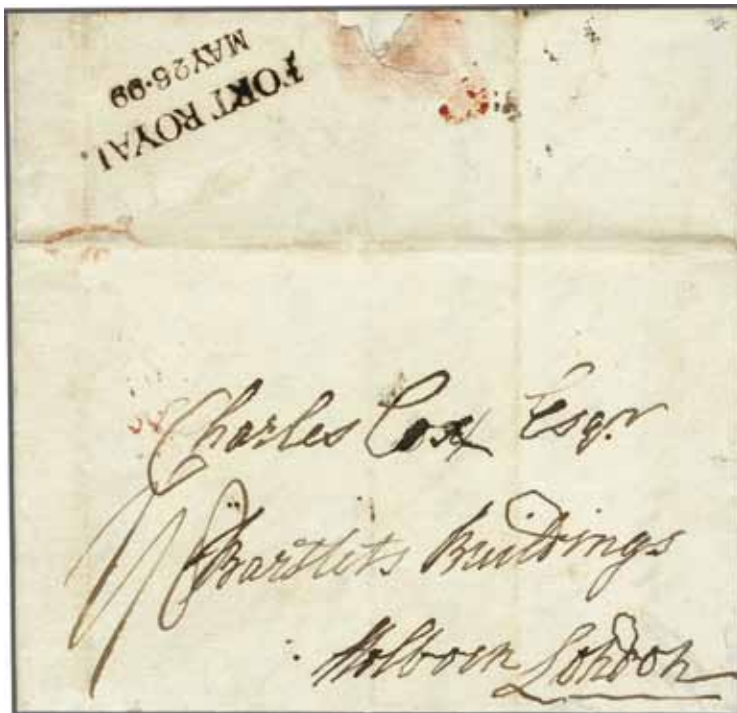 FORT ROYAL.
MAY 26·99
Charles Cox Esqr.
Bartlets Buildings
Holborn London